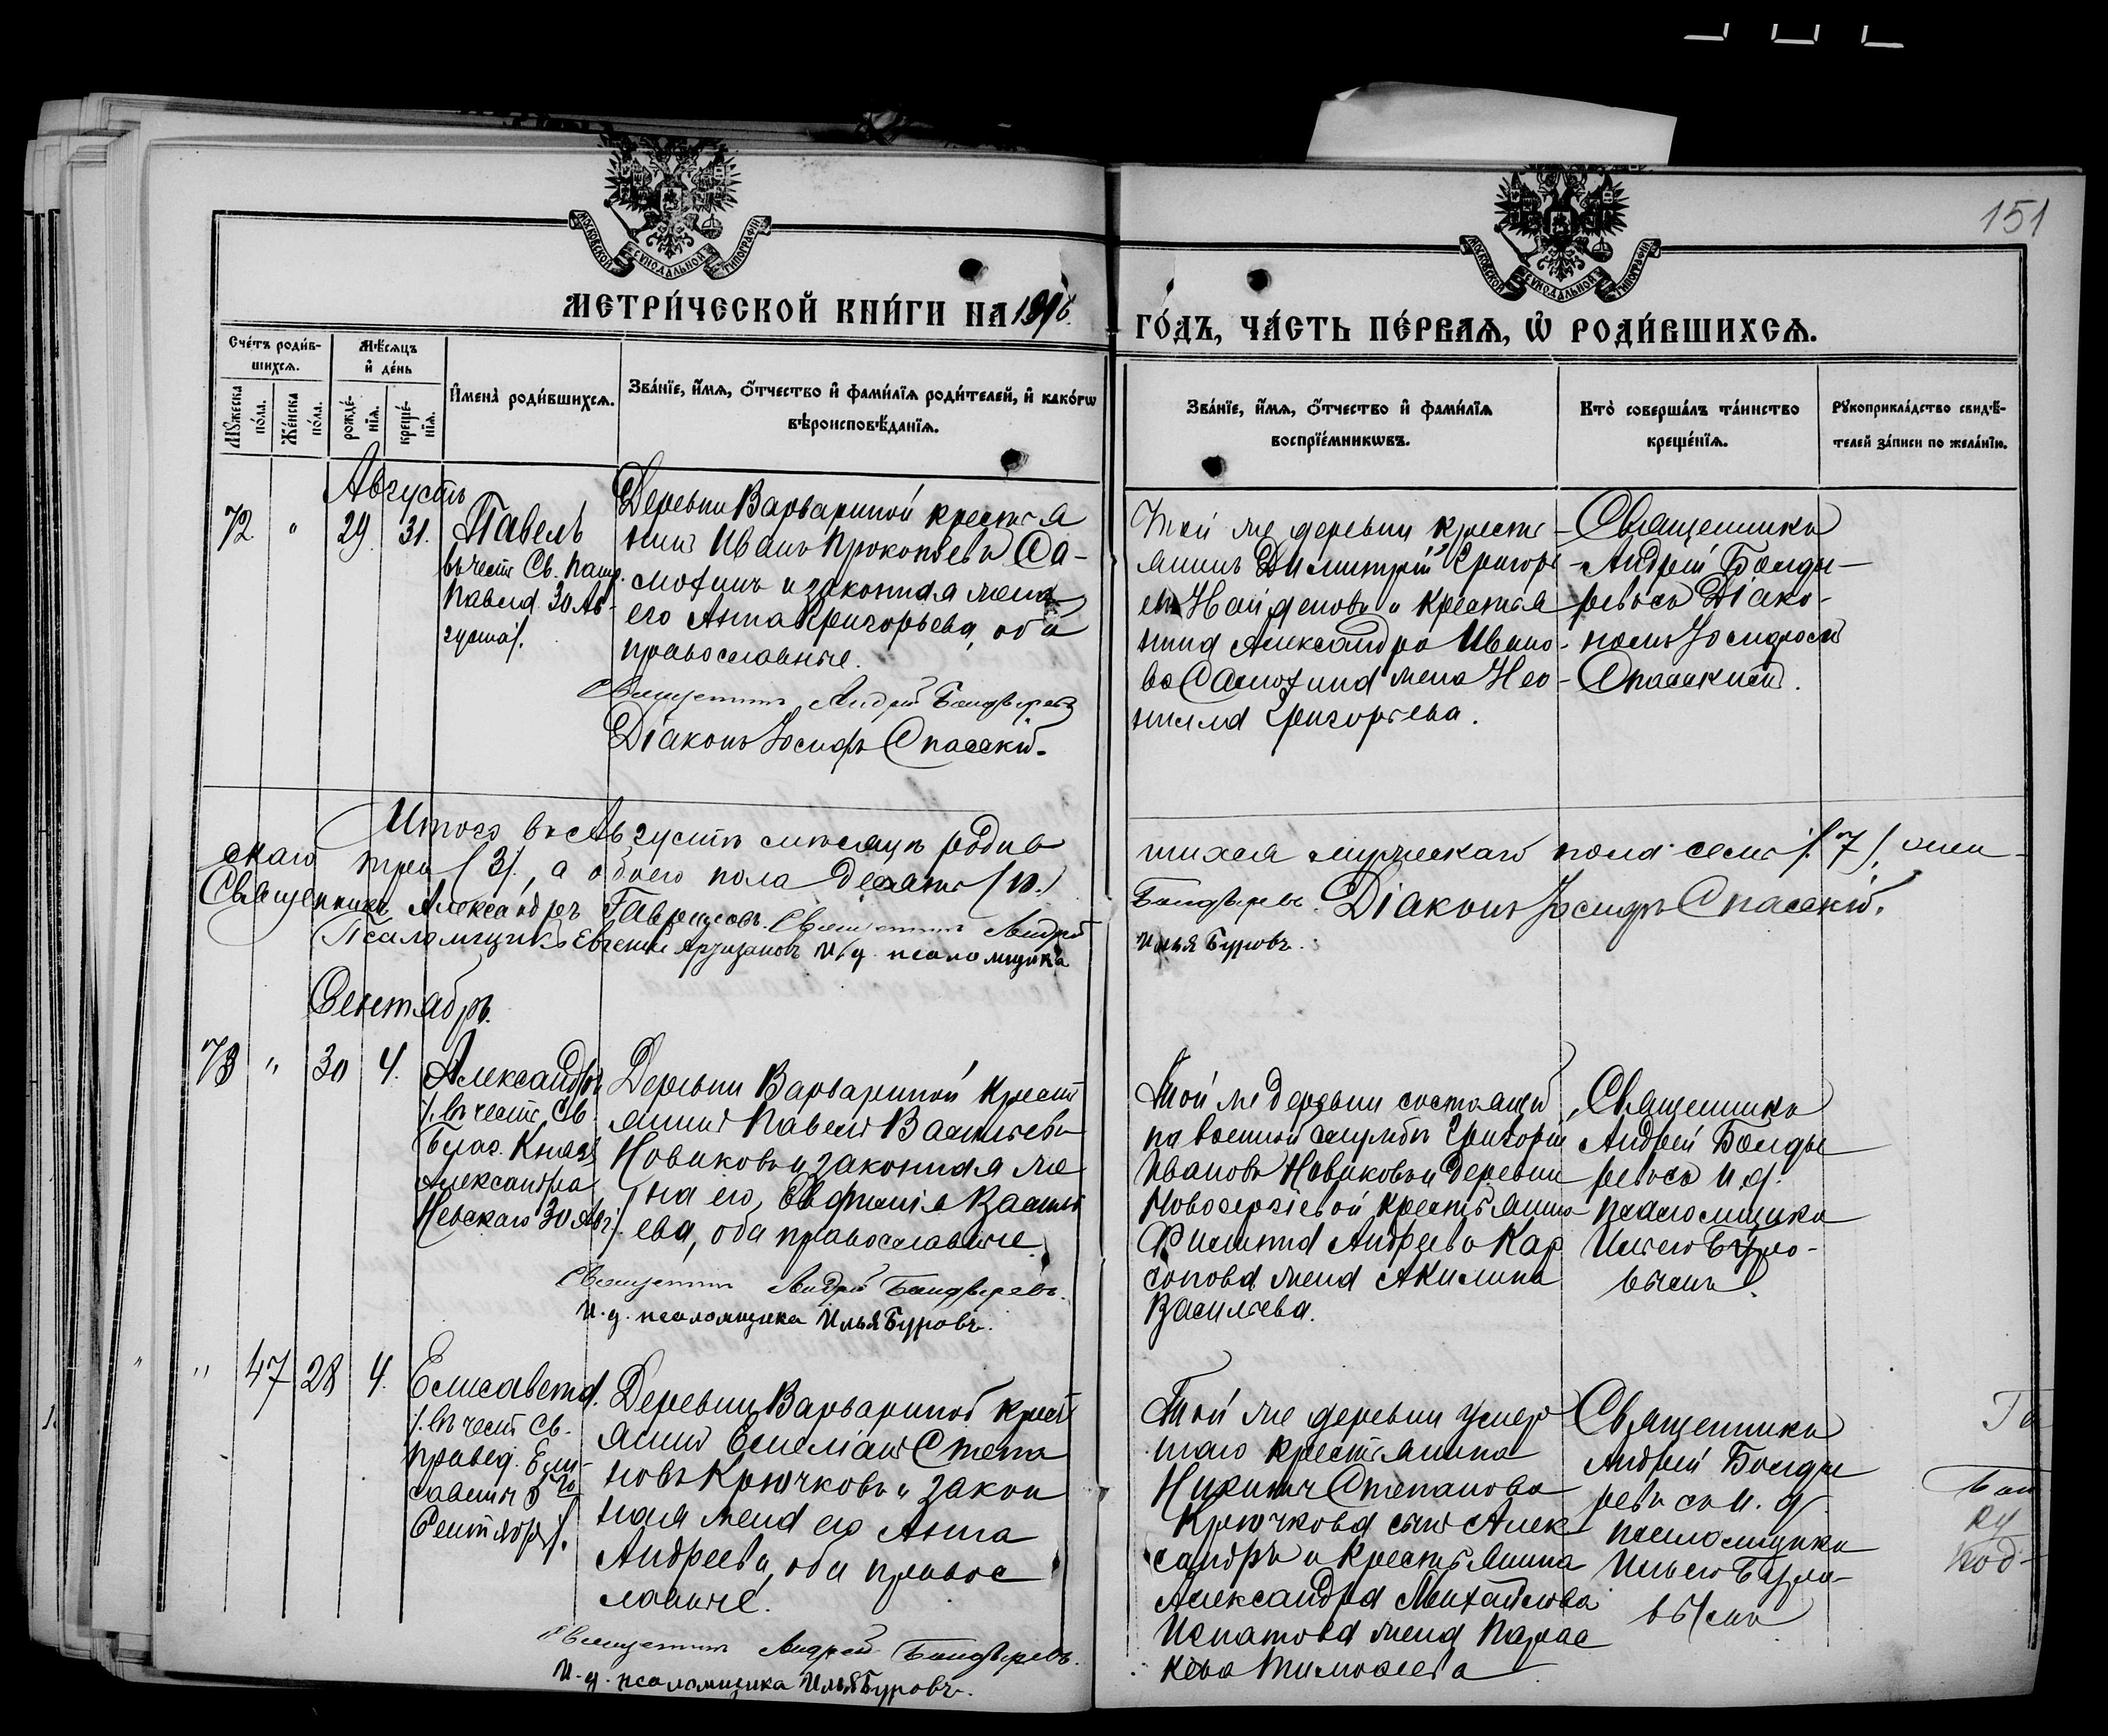 151
МОСКОВСКОЙ СѴНОДАЛЬНОЙ ТИПОГРАФІИ
МОСКОВСКОЙ СѴНОДАЛЬНОЙ ТИПОГРАФІИ
МЕТРИ́ЧЕСКОЙ КНИ́ГИ НА 1896.
ГО́ДЪ, ЧА́СТЬ ПЕ́РВАЯ, Ѡ РОДИ́ВШИХСЯ.
Сче́тъ роди́в-
шихся.
Мѣ́сяцъ
и҆ де́нь
Мꙋ́жеска по́ла.
Же́нска по́ла.
рожде́-нїя.
креще́-нїя.
И҆мена̀ роди́вшихся.
Зва́нїе, и҆́мя, ѻ҆́тчество и҆ фами́лїя роди́телей, и҆ како́гѡ
вѣроисповѣ́данїя.
Зва́нїе, и҆́мя, ѻ҆́тчество и҆ фами́лїя
воспрїе́мникѡвъ.
Кто̀ соверша́лъ та́инство
креще́нїя.
Рꙋкоприкла́дство свидѣ́-
телей за́писи по жела́нїю.
Августъ
72. " 29. 31. Павелъ
въ честь Св. Патр.
Павла 30 Ав-
густа/.
Деревни Варвариной крестья
нинъ Иванъ Прокопьевъ Са-
мохинъ и законная жена
его Анна Григорьева, оба
православные.
Священникъ Андрей Болдыревъ
Діаконъ Іосифъ Спасскій.
Той же деревни кресть-
янинъ Димитрій Григорь-
евъ Найденовъ и крестья
нина Александра Ивано-
ва Самохина жена Нео-
нилла Григорьева.
Священникъ
Андрей Болды-
ревъ съ Діако-
номъ Іосифомъ
Спасскимъ.
Итого въ Августѣ мѣсяцѣ родив
шихся мужескаго пола семь /7/, жен-
скаго три /3/, а обоего пола десять /10./
Священникъ Александръ Гавриловъ. Священникъ Андрей
Болдыревъ. Діаконъ Іосифъ Спасскій.
Псаломщикъ Евгеній И. д. псаломщика
Илья Буровъ.
Сентябрь.
73 " 30 4. Александръ
/въ честь Св.
Благ. Князя
Александра
Невскаго 30 Авг./
Деревни Варвариной крест
янинъ Павелъ Васильевъ
Новиковъ и законная же
на его, Евфимія Василь
ева, оба православные.
Священникъ Андрей Болдыревъ.
И. д. псаломщика Илья Буровъ.
Той же деревни состоящій
на военной службѣ Григорій
Ивановъ Новиковъ и деревни
Новосергіевой крестьянина
Филиппа Андреева Кар
сонова жена Акилина
Васильева.
Священникъ
Андрей Болды
ревъ съ И. д.
псаломщика
Ильею Буро-
вымъ.
" 47 28 4. Елисавета.
/въ честь Св.
правед. Ели-
саветы 5го
Сентября/.
Деревни Варвариной крест
янинъ Емеліанъ Степа
новъ Крючковъ и закон
ная жена его Анна
Андреева, оба правос
лавные.
Священникъ Андрей Болдыревъ.
И. д. псаломщика Илья Буровъ.
Той же деревни умер
шаго крестьянина
Никиты Степанова
Крючкова сынъ Алек
сандръ и крестьянина
Александра Михайлова
Игнатова жена Парас
кева Тимофеева
Священникъ
Андрей Болды
ревъ съ И. д.
псаломщика
Ильею Буро-
вымъ